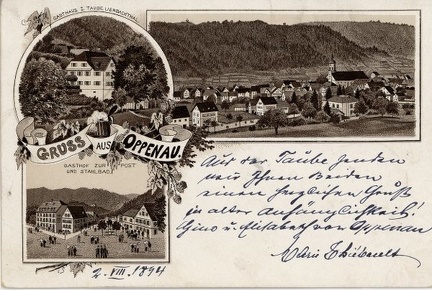 GASTHAUS Z. TAUBE LIERBACHTHAL
GRUSS AUS OPPENAU.
GASTHOF ZUR POST
UND STAHLBAD
Aus der Taube senden
wir Ihnen Beiden
einen herzlichen Gruß
in alter Anhänglichkeit!
Gino u Elisabeth Oppenau
Marie
2. VIII. 1894